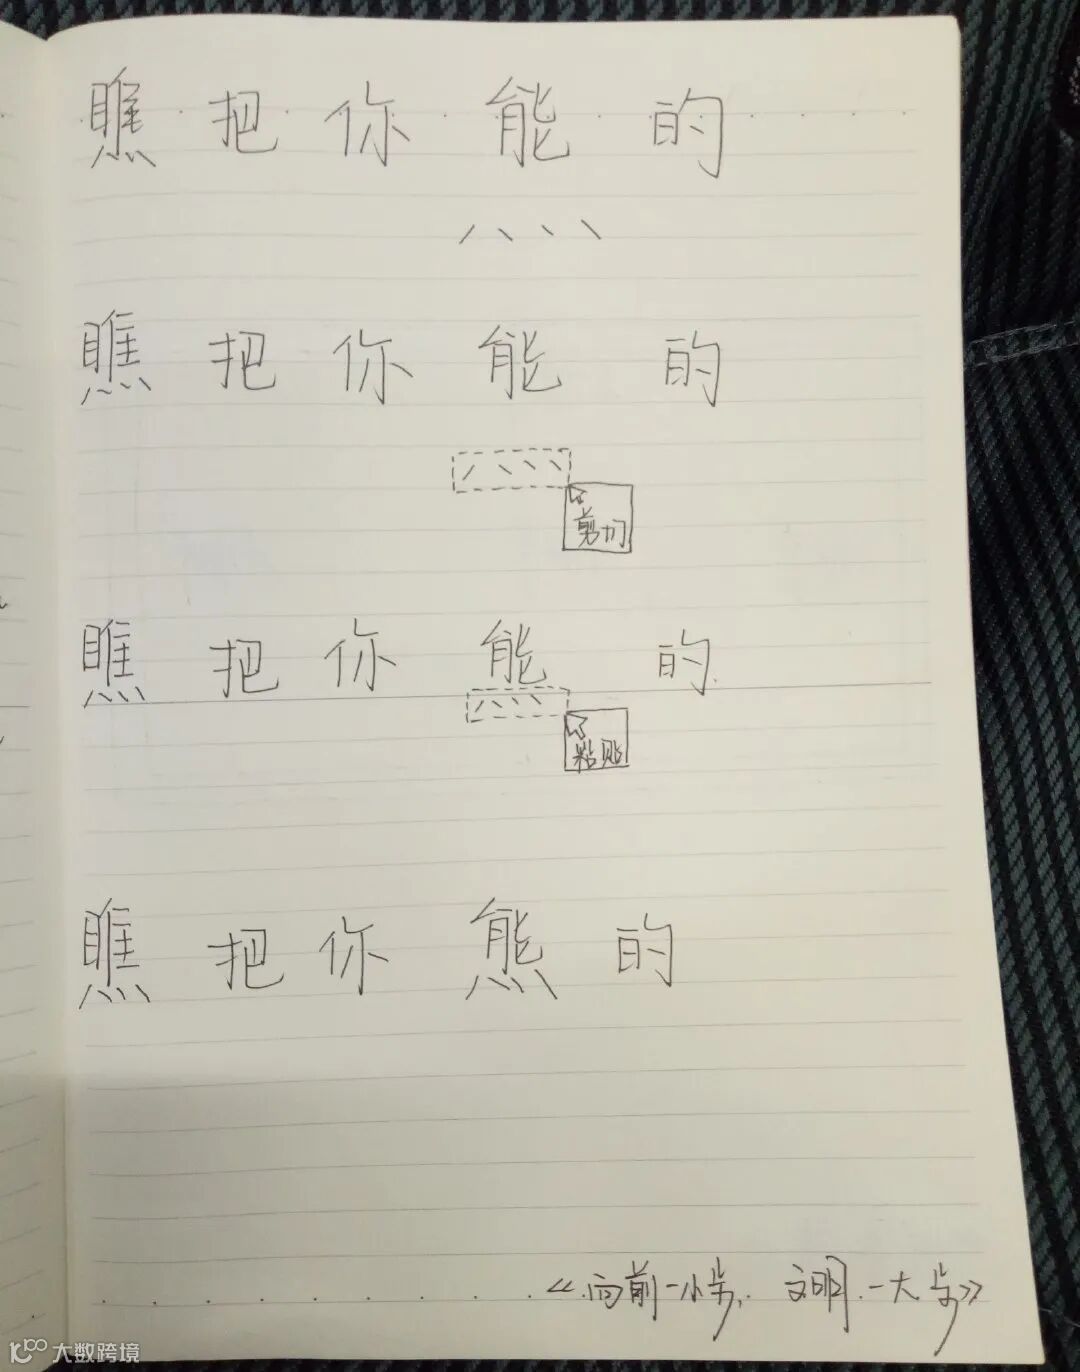 瞧把你能的
瞧把你能的
剪切
瞧把你能的
粘贴
瞧把你熊的
《向前一小步，文明一大步》
大数跨境